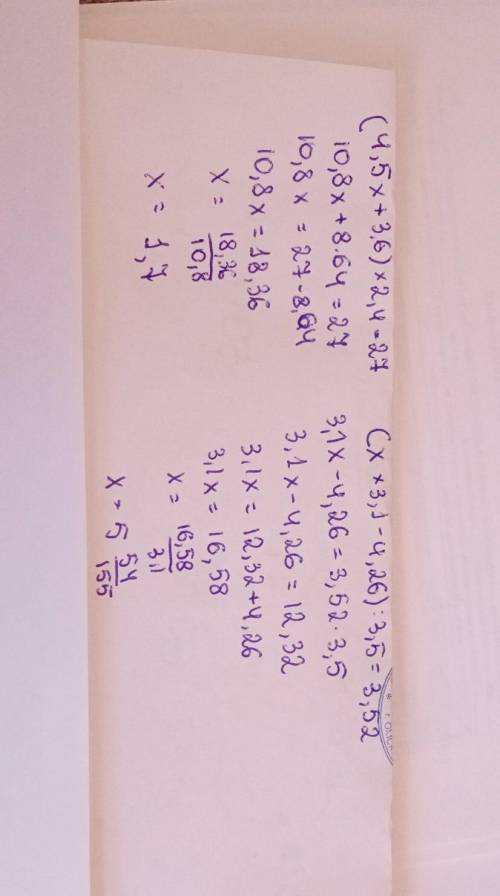 (4,5x+3,6)×2,4=27
10,8x+8.64=27
10,8x = 27-8,64
10,8x=18,36
x = 18,36/10,8
x = 1,7
(x×3,1-4,26):3,5=3,52
3,1x-4,26=3,52·3,5
3,1x-4,26=12,32
3,1x=12,32+4,26
3,1x=16,58
x = 16,58/3,1
x = 5 54/155